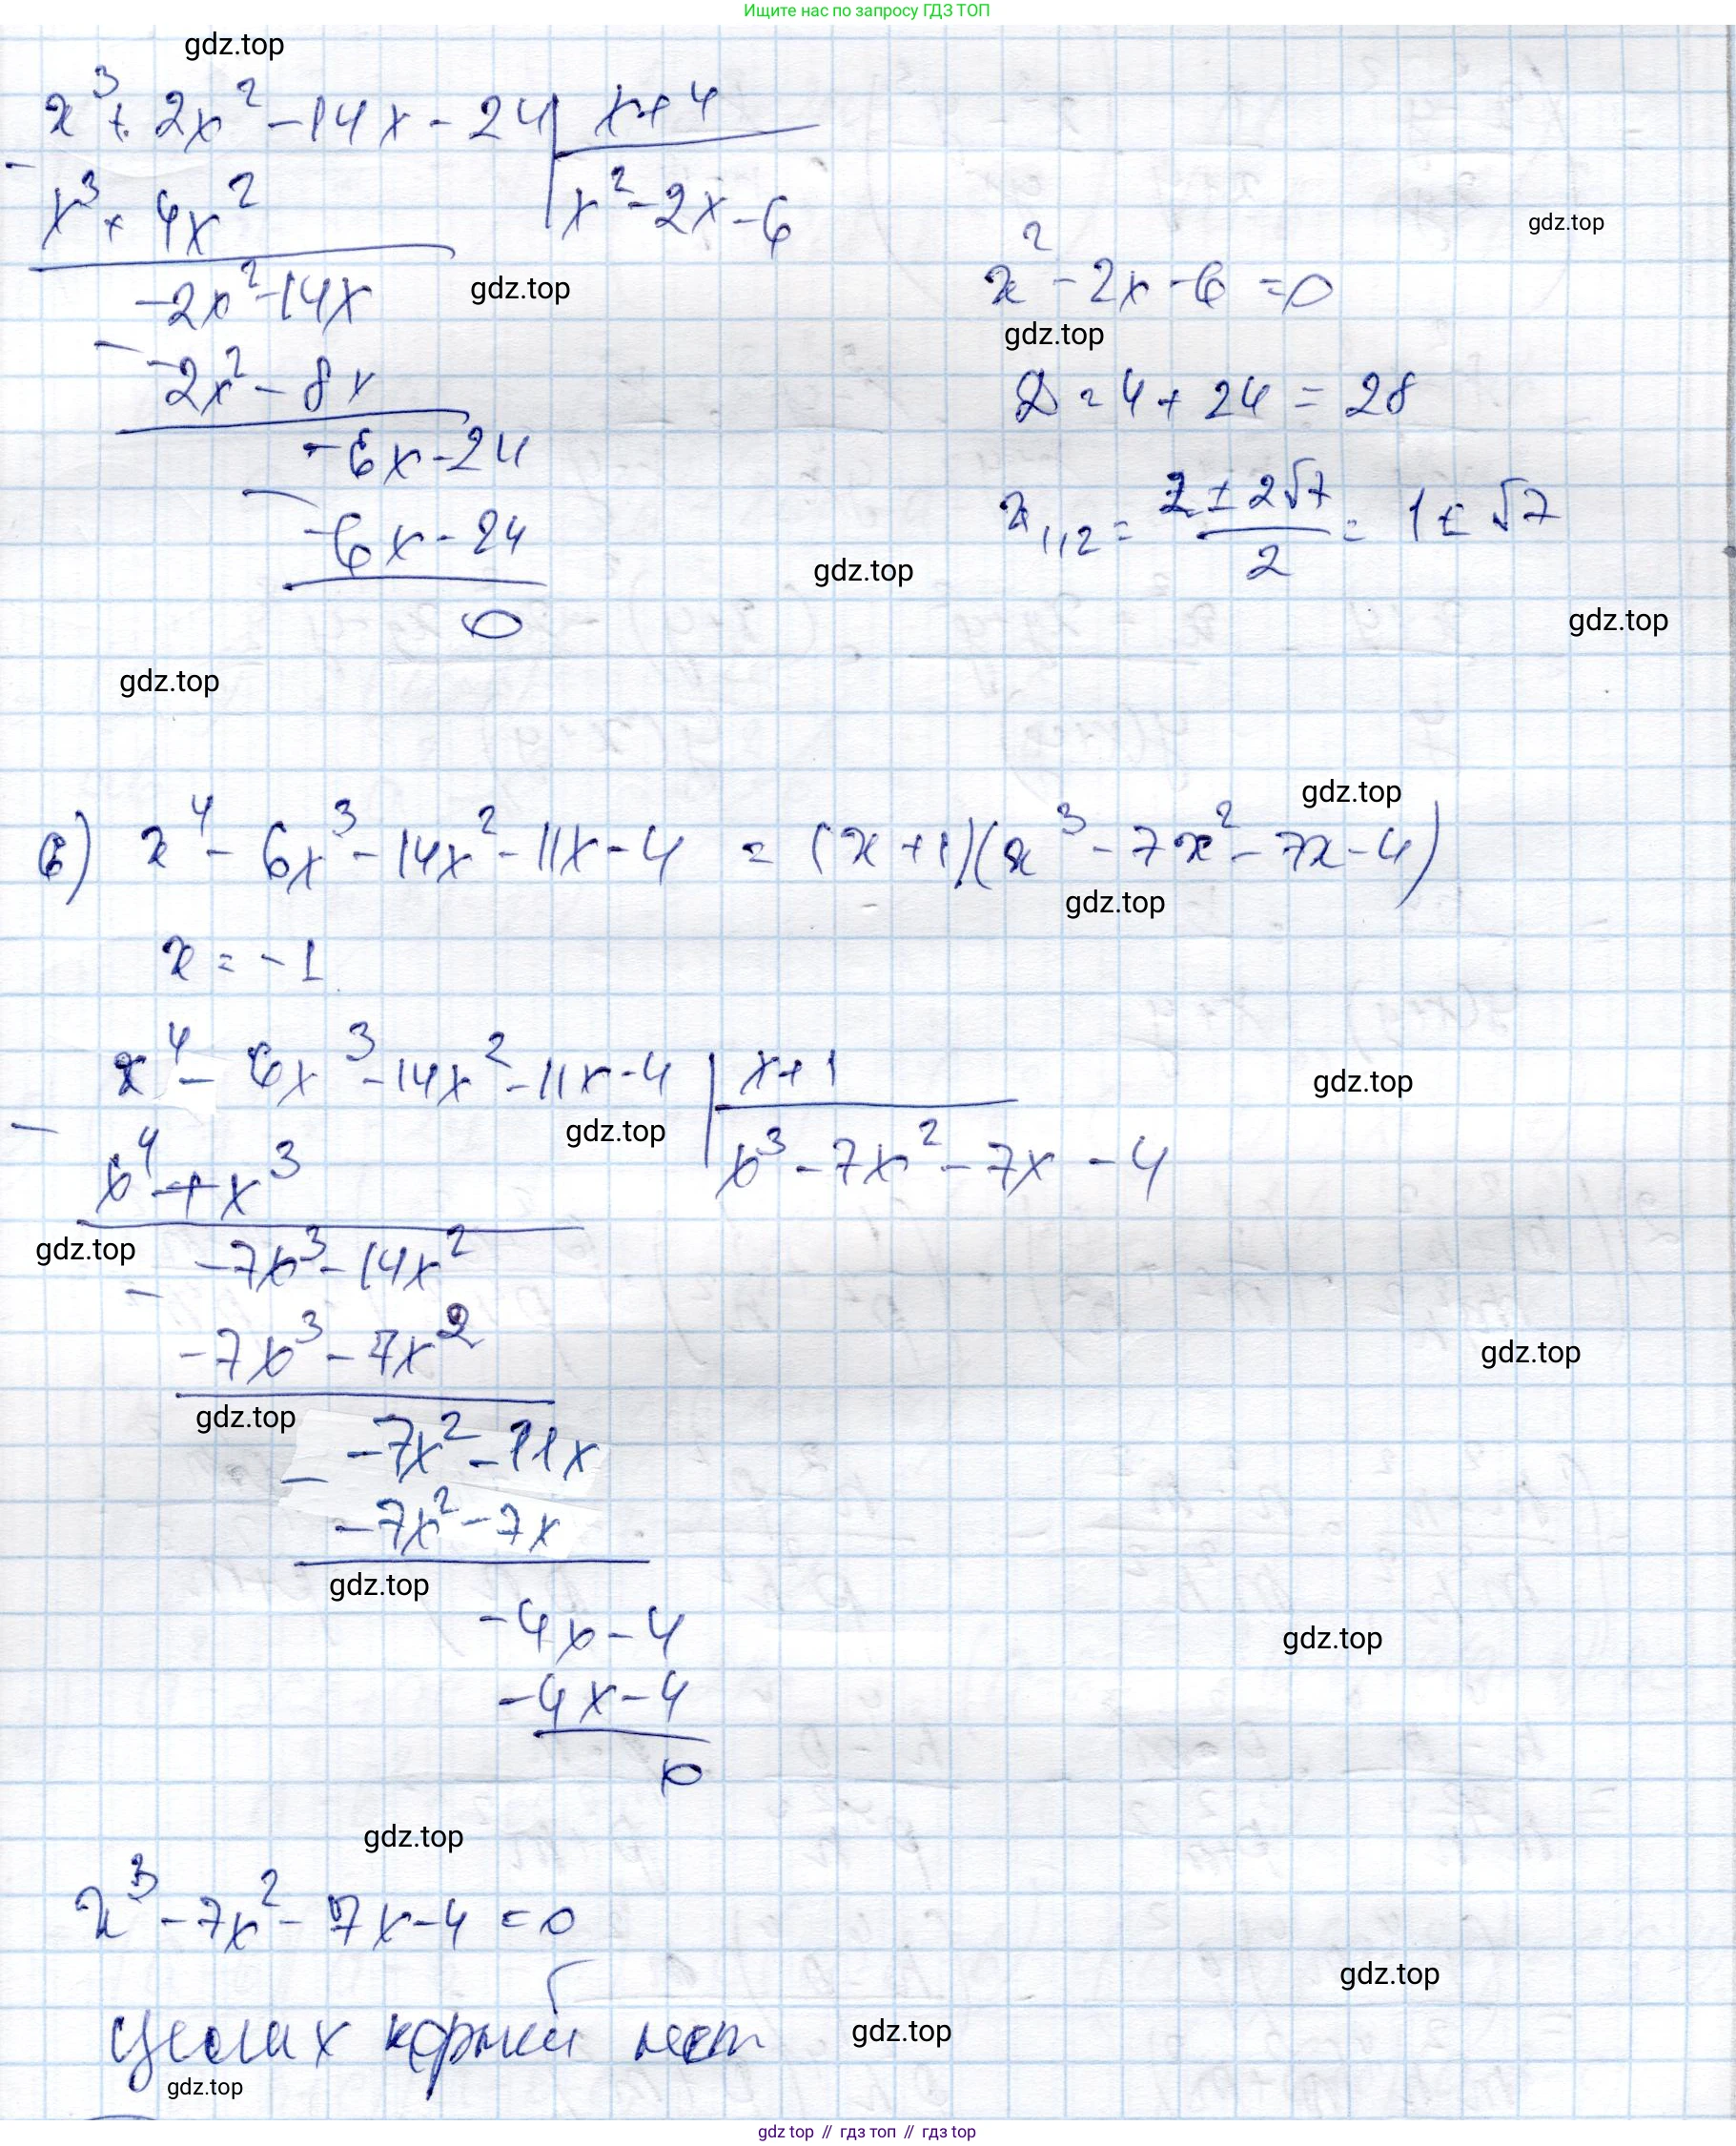 Ищите нас по запросу ГДЗ ТОП
gdz.top
x³ + 2x² - 14x - 24 | x + 4
- x³ + 4x² | x² - 2x - 6
gdz.top
-2x² - 14x
gdz.top
x² - 2x - 6 = 0
gdz.top
- -2x² - 8x
D = 4 + 24 = 28
-6x - 24
- -6x - 24
x₁,₂ = (2 ± 2√7)/2 = 1 ± √7
gdz.top
0
gdz.top
gdz.top
gdz.top
в) x⁴ - 6x³ - 14x² - 11x - 4 = (x + 1)(x³ - 7x² - 7x - 4)
gdz.top
x = -1
x⁴ - 6x³ - 14x² - 11x - 4 | x + 1
gdz.top
gdz.top
- x⁴ + x³ | x³ - 7x² - 7x - 4
gdz.top
-7x³ - 14x²
- -7x³ - 7x²
gdz.top
gdz.top
-7x² - 11x
- -7x² - 7x
gdz.top
-4x - 4
gdz.top
-4x - 4
0
gdz.top
x³ - 7x² - 7x - 4 = 0
gdz.top
целых корней нет
gdz.top
gdz.top
gdz top // гдз топ // gdz top